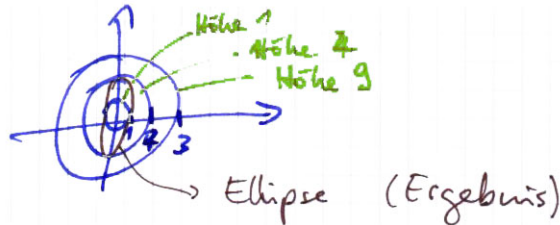 Höhe 1
Höhe 4
Höhe 9
1 2 3
Ellipse (Ergebnis)